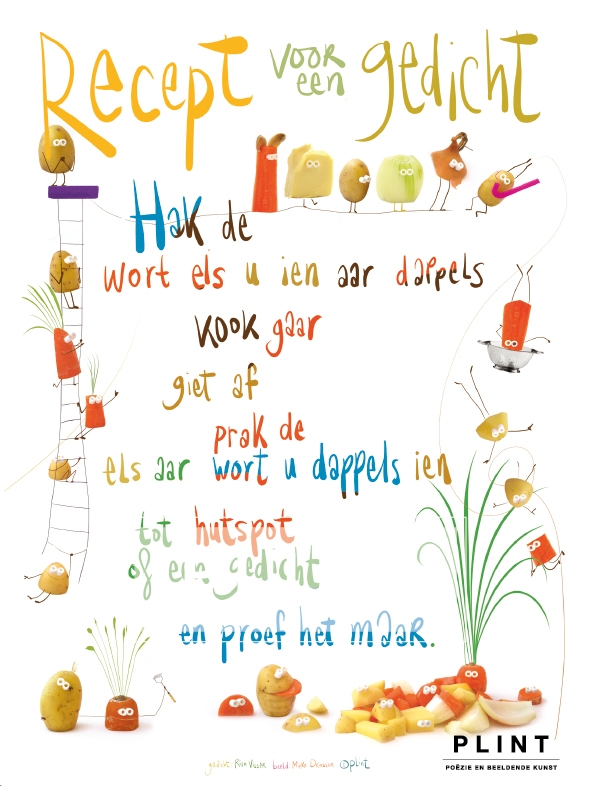 Recept voor een gedicht
Hak de
wort els u ien aar dappels
kook gaar
giet af
prak de
els aar wort u dappels ien
tot hutspot
of een gedicht
en proef het maar.
gedicht: Rian Visser beeld
©plint
PLINT
POËZIE EN BEELDENDE KUNST